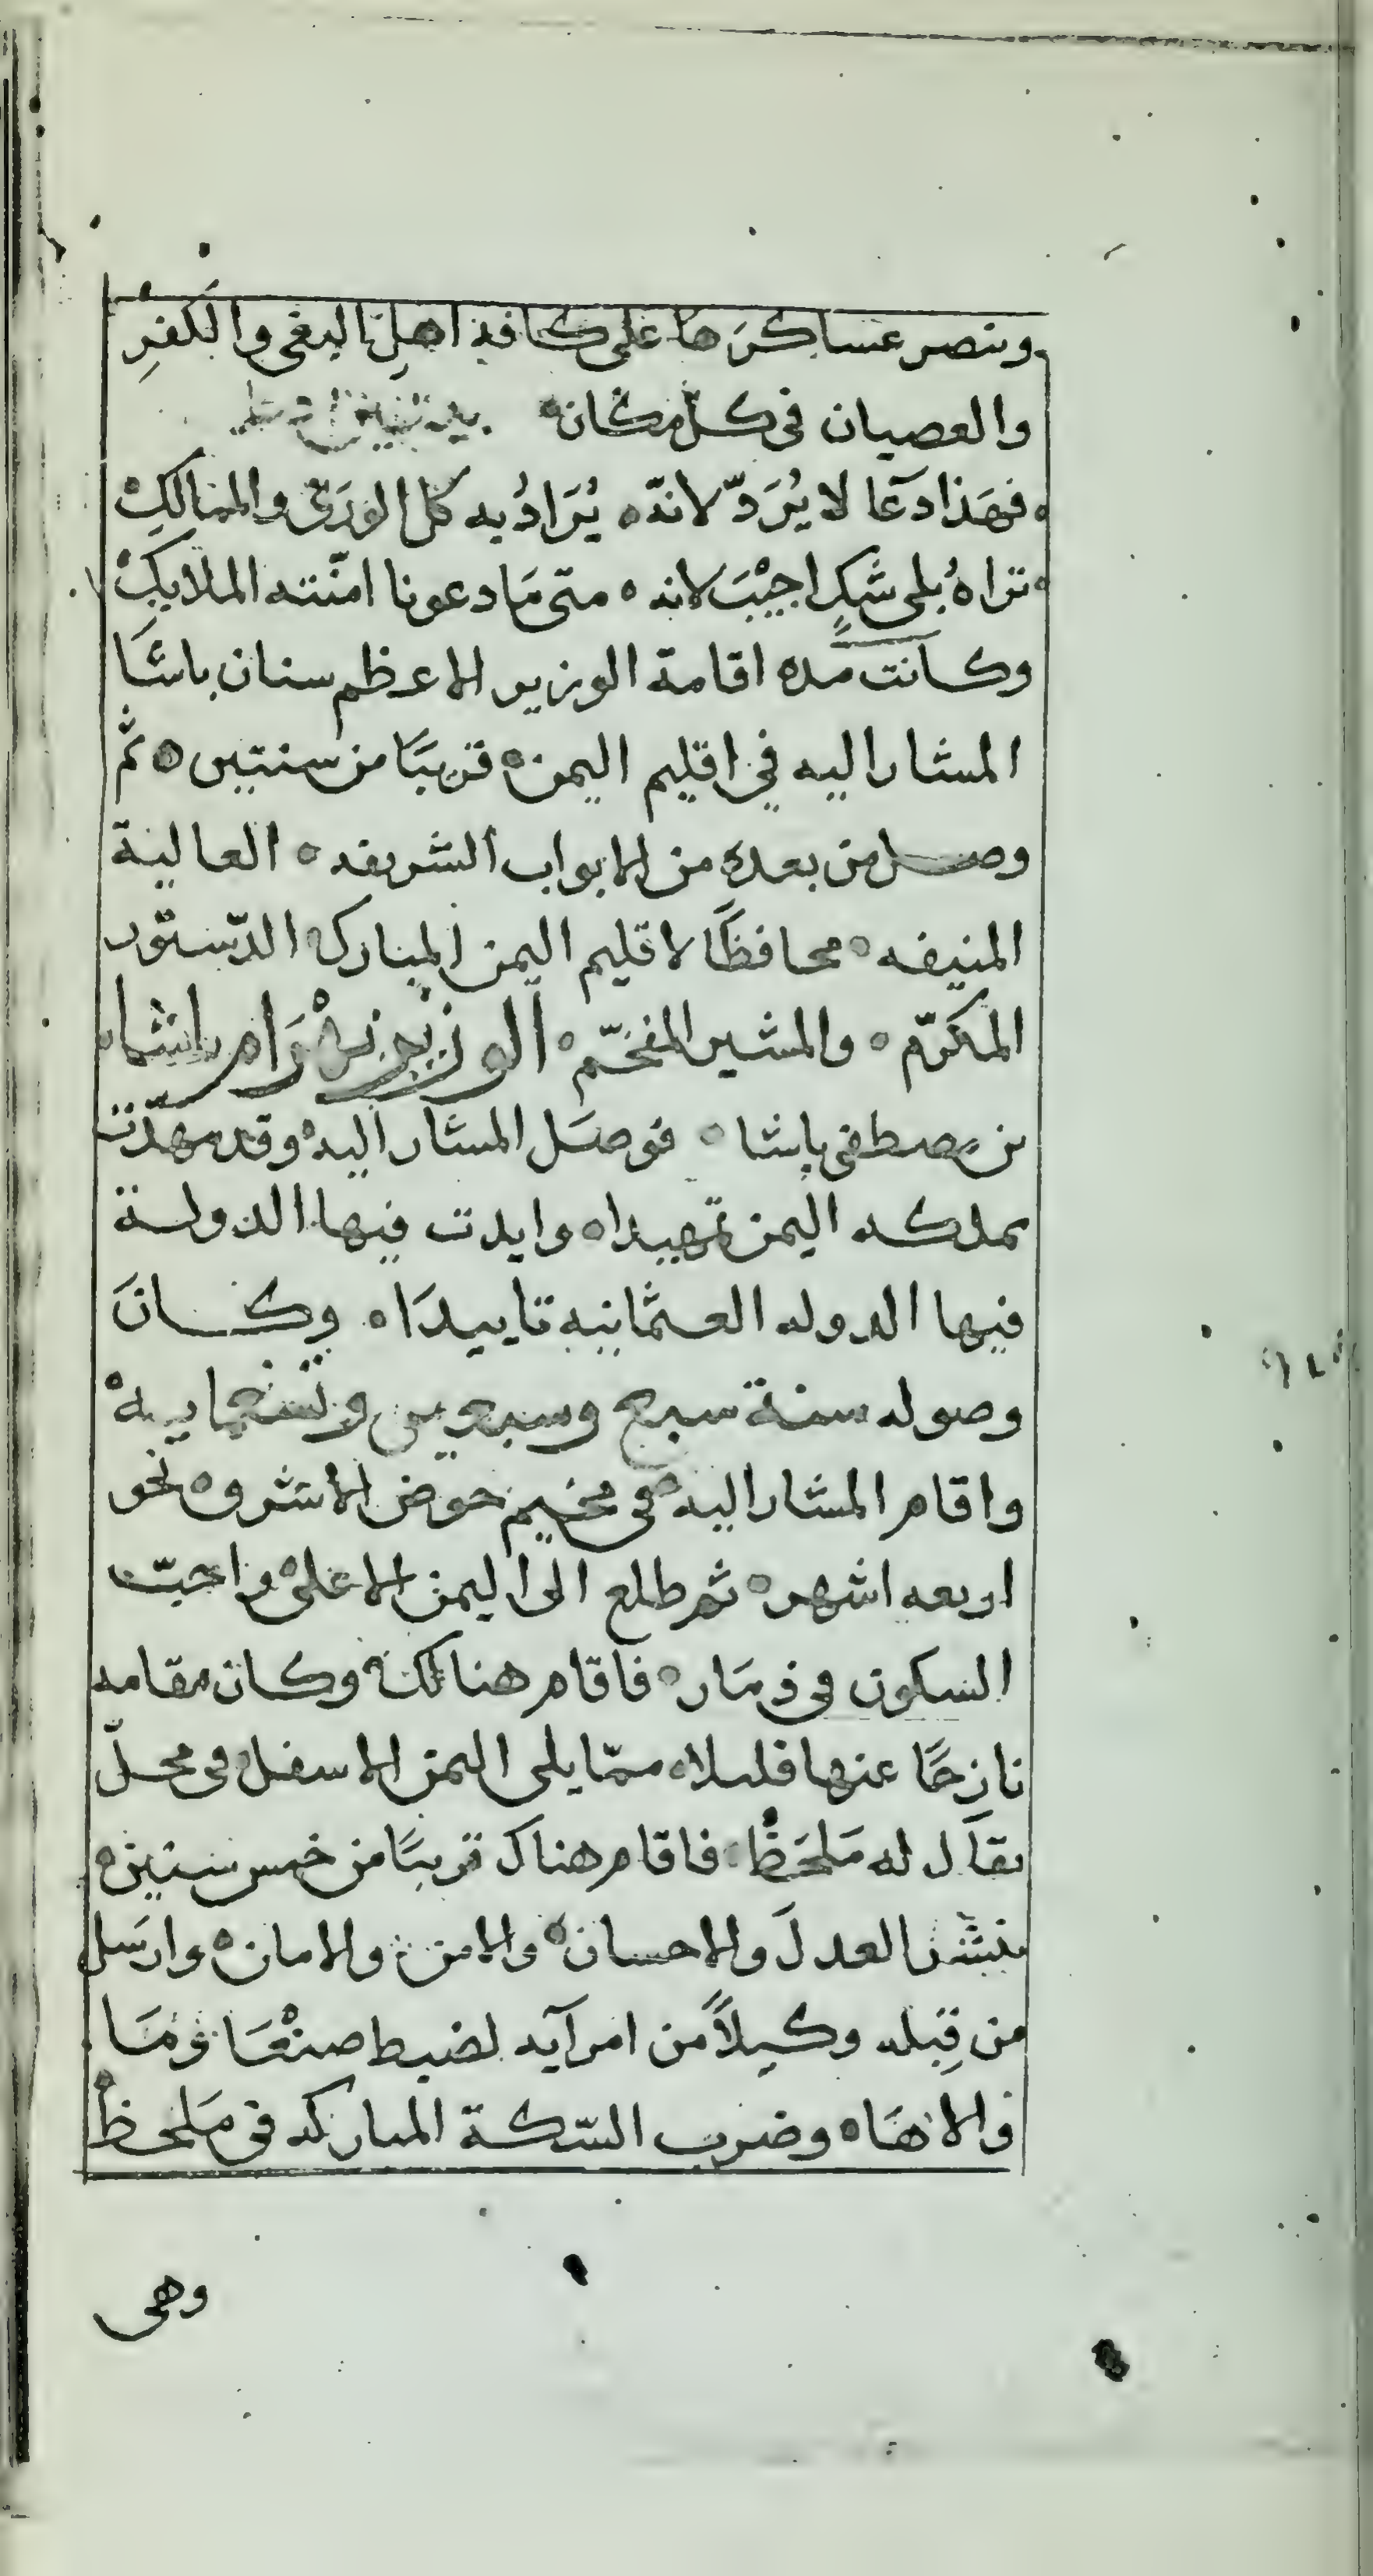 وينصر عساكرَها على كافة اهلِ البغى والكفرِ
والعصيان فى كلّ مكان ٥
٥ فهَذا دعَا لا يُرَدّ لانّه ٥ يُرَادُ به كل الورَى والممالكِ
٥ تراهُ بلى شكٍ اجيْبَ لانه ٥ متى مَا دعونا امّنته الملايكِ
وكانت مده اقامة الوزير الاعظم سنان باشا
المشار اليه فى اقليم اليمن ٥ قريبًا من سنتين ٥ ثم
وصل من بعده من الابواب الشريفه ٥ العالية
المنيفه ٥ محافظًا لاقليم اليمن المباركه الدّستور
المكرّم ٥ والمشير المفخّم ٥ الوزير بهْرَام باشا ٥
بن مصطفى باشا ٥ فوصَل المشار اليه وقد مهدّت
مملكه اليمن تمهيدا ٥ وايدت فيها الدولة
فيها الدوله العثمانيه تاييدَا ٥ وكانَ
وصوله سنة سبع وسبعين وتسعمايه
واقام المشار اليه فى مخيم حوض الاشرف نحو
اربعه اشهر ٥ ثم طلع الى اليمن الاعلى واحبّ
السكون فى ذمَار ٥ فاقام هنالك ٥ وكان مقامه
نازحًا عنها قليلا ٥ ممّا يلى اليمن الاسفل فى محلّ
يقال له مَلحَظْ ٥ فاقام هناك قريبًا من خمس سنين ٥
ينشر العدلَ والاحسان ٥ والامن والامان ٥ وارسَل
من قِبله وكيلاً من امرآيه لضبط صنْعَا ومَا
والاهَا ٥ وضرب السّكة المباركه فى مَلحظْ
وهى